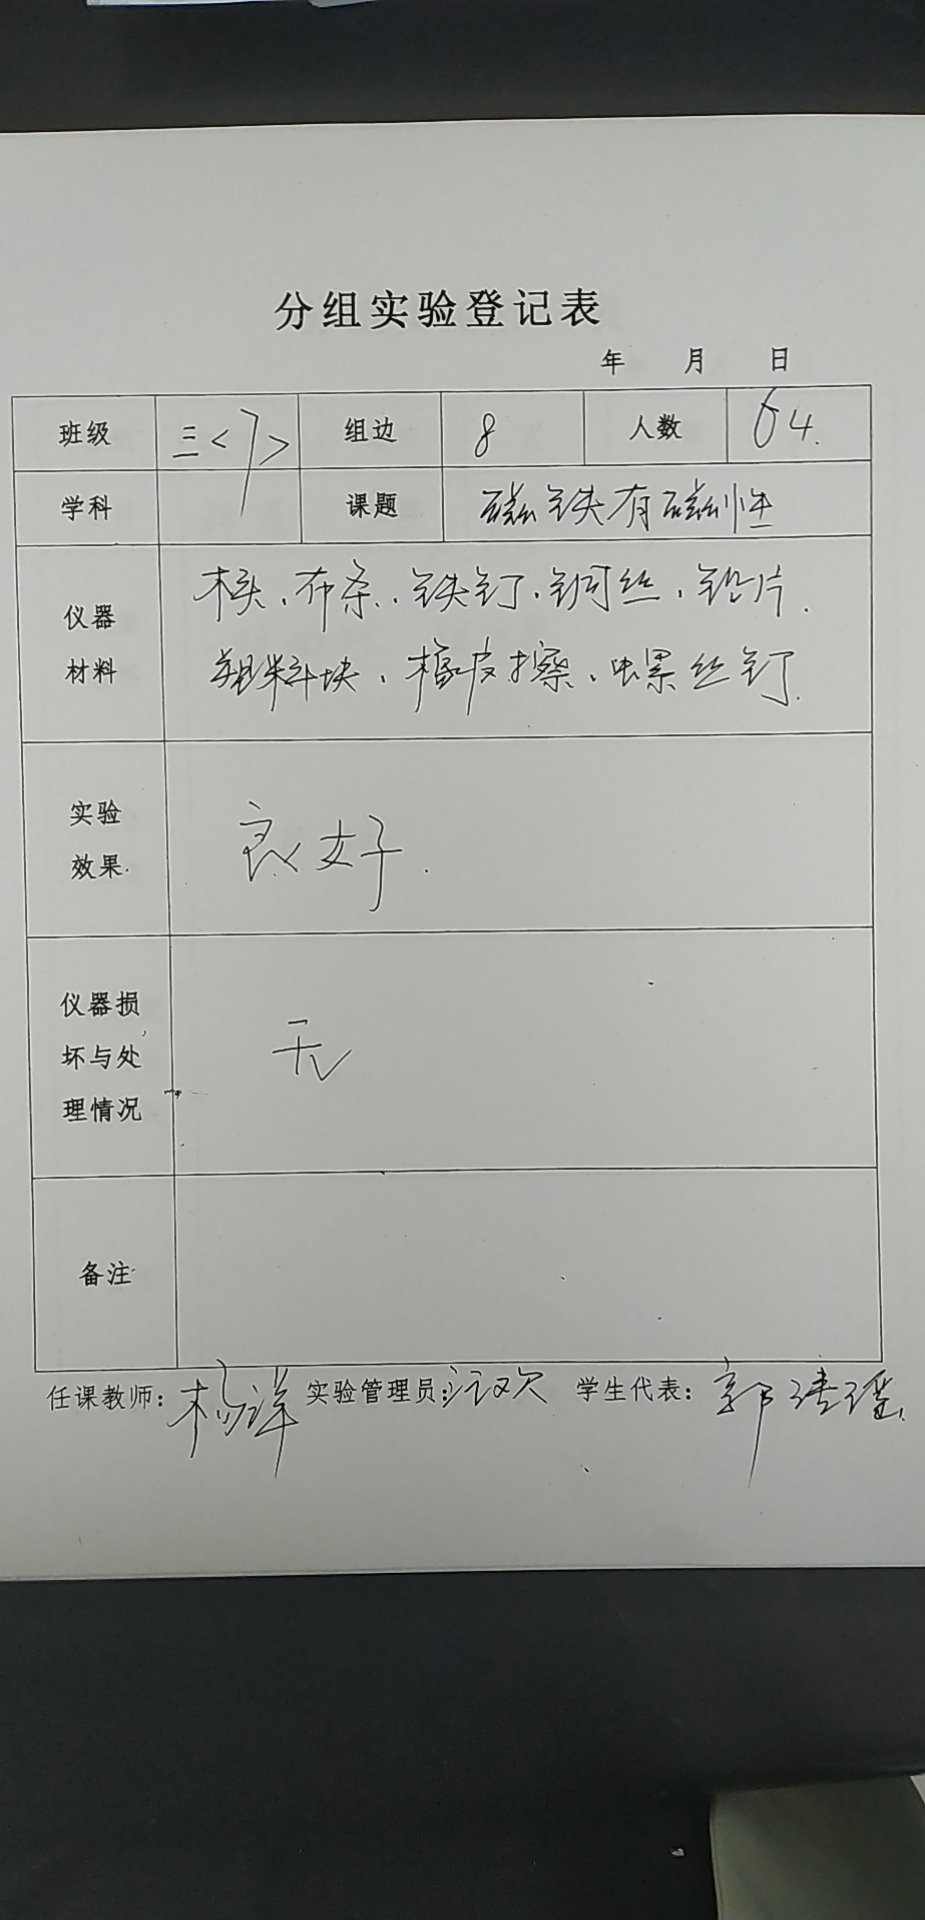 分组实验登记表
年 月 日
班级 三<7> 组边 8 人数 64.
学科 课题 磁铁有磁性
仪器
材料
木头、布条、铁钉、铜丝、铅片、
塑料块、橡皮擦、螺丝钉.
实验
效果
良好.
仪器损
坏与处
理情况
无
备注
任课教师: 杨洋 实验管理员: 汪欢 学生代表: 郭婧瑶